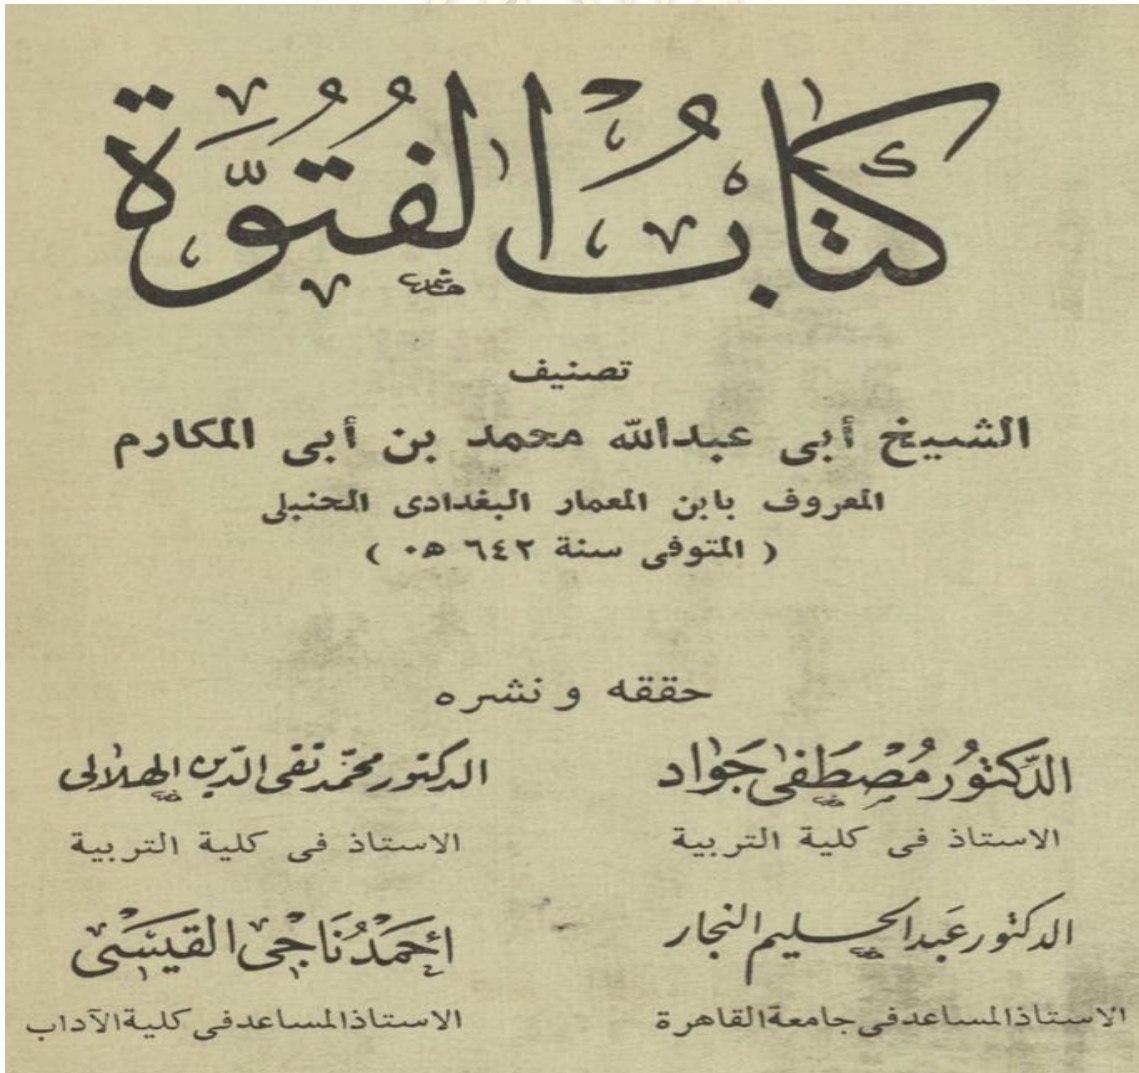 كتاب الفتوة
تصنيف
الشيخ أبى عبدالله محمد بن أبى المكارم
المعروف بابن المعمار البغدادى الحنبلى
( المتوفى سنة ٦٤٢ هـ٠ )
حققه و نشره
الدكتور مصطفى جواد
الاستاذ فى كلية التربية
الدكتور محمد تقى الدين الهلالى
الاستاذ فى كلية التربية
الدكتور عبد الحليم النجار
الاستاذ المساعد فى جامعة القاهرة
أحمد ناجى القيسى
الاستاذ المساعد فى كلية الآداب